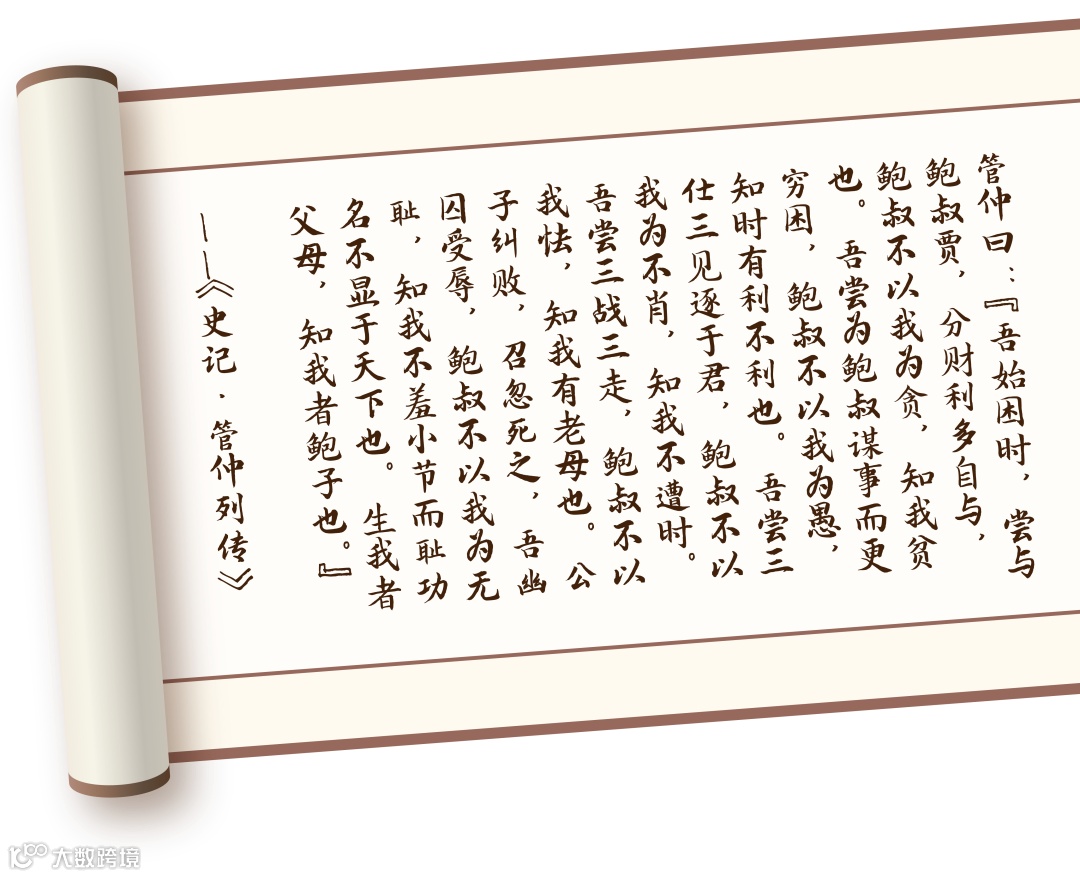 管仲曰：『吾始困时，尝与
鲍叔贾，分财利多自与，
鲍叔不以我为贪，知我贫
也。吾尝为鲍叔谋事而更
穷困，鲍叔不以我为愚，
知时有利不利也。吾尝三
仕三见逐于君，鲍叔不以
我为不肖，知我不遭时。
吾尝三战三走，鲍叔不以
我怯，知我有老母也。公
子纠败，召忽死之，吾幽
囚受辱，鲍叔不以我为无
耻，知我不羞小节而耻功
名不显于天下也。生我者
父母，知我者鲍子也。』
——《史记·管仲列传》
大数跨境